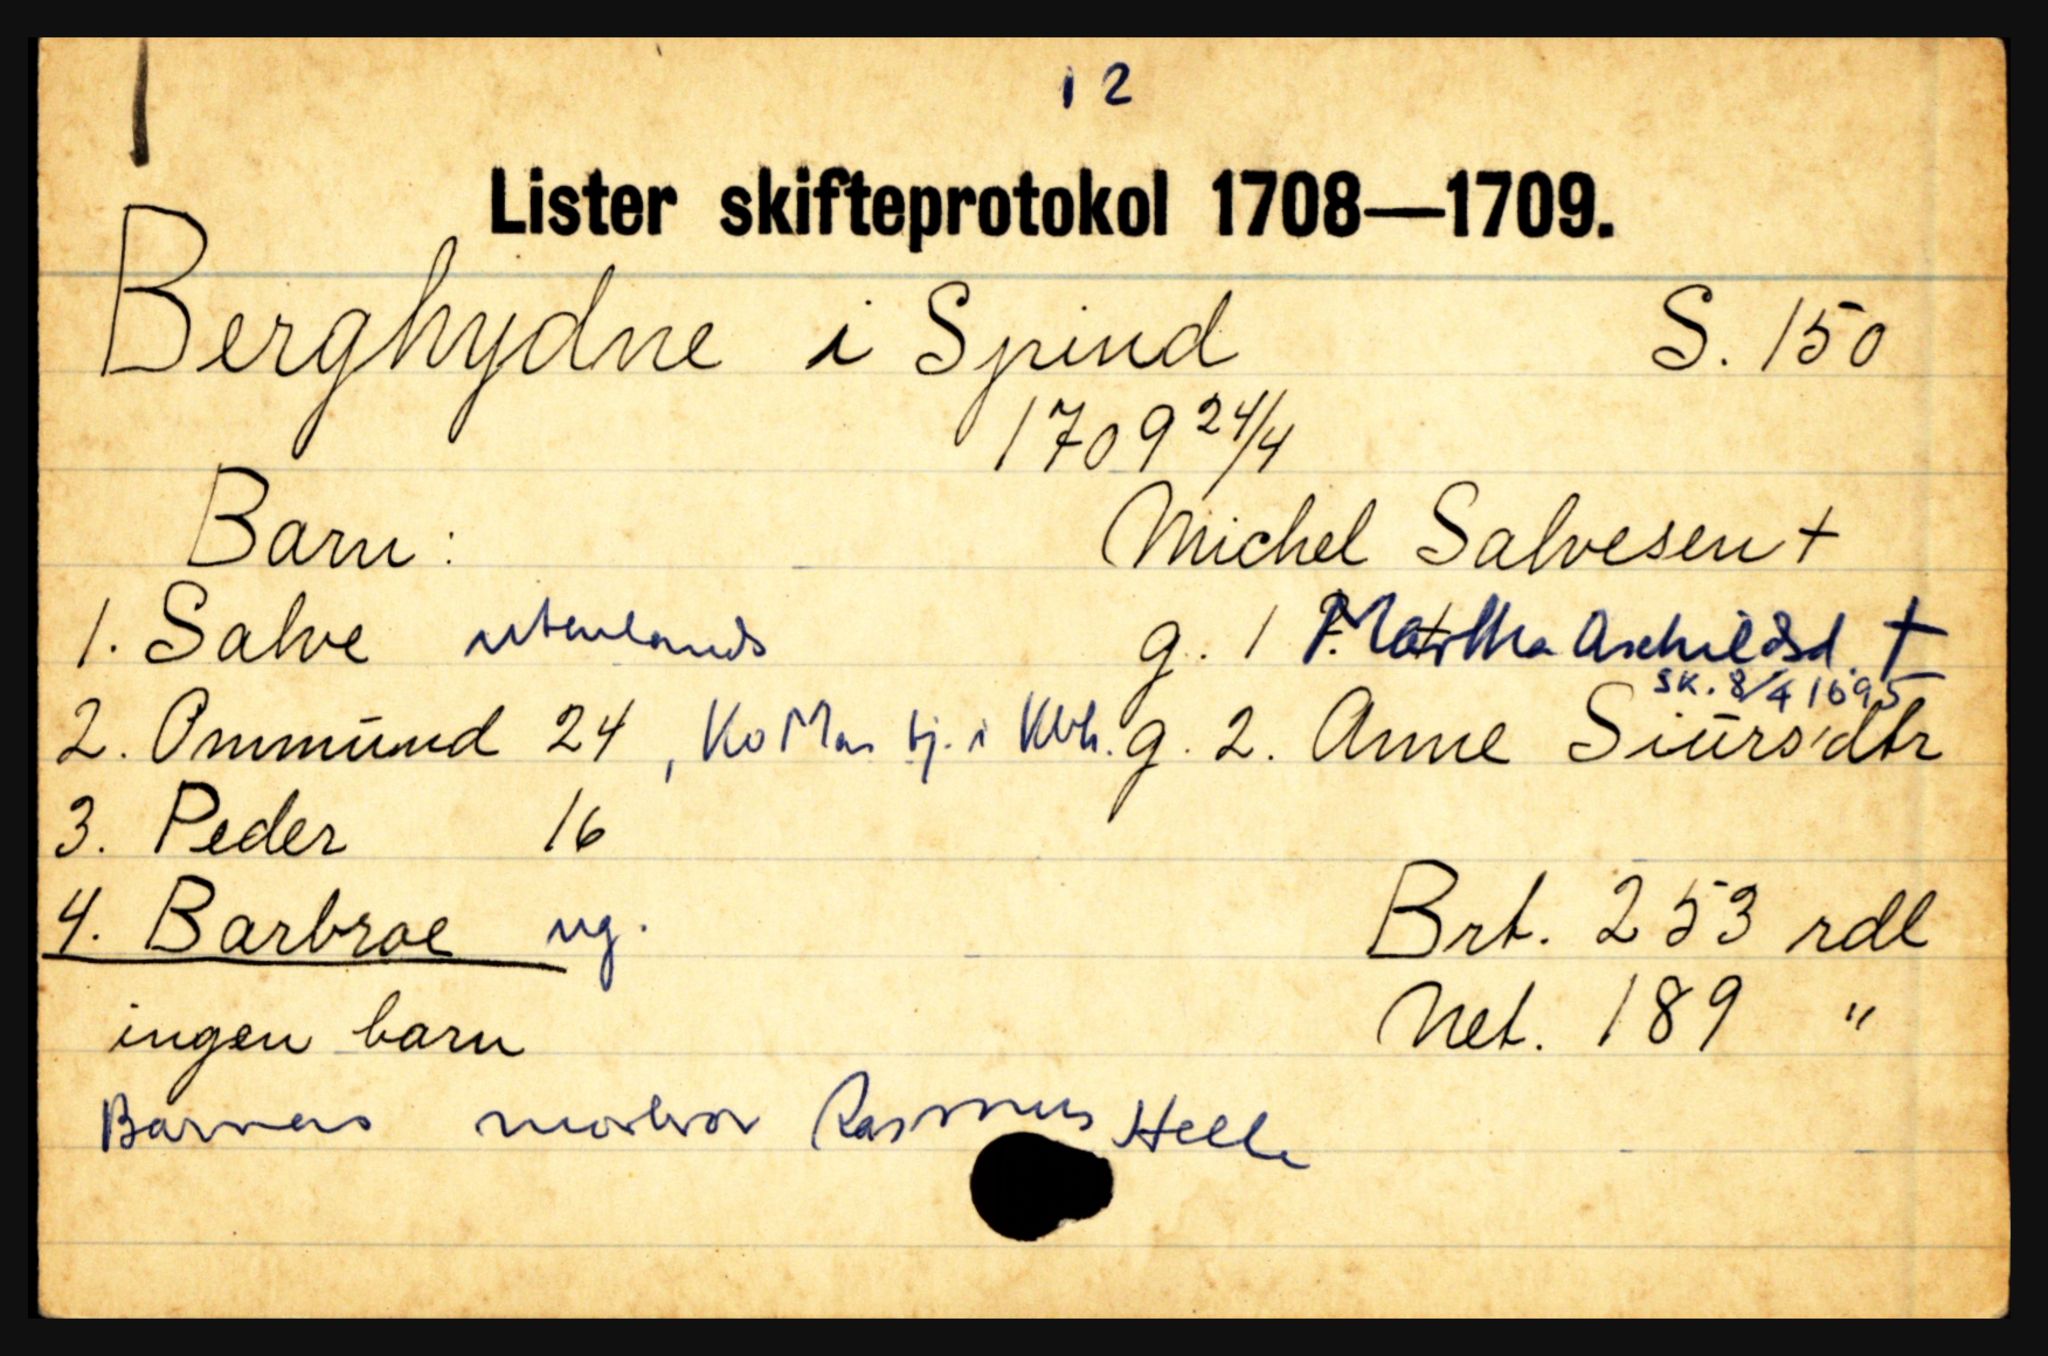 12
Lister skifteprotokol 1708—1709.
Berghydne i Spind S. 150
1709 24/4
Barn: Michel Salvesen +
1. Salve utenlands g. 1 Martha Aschildsd. †
sk. 8/4 1695
2. Ommund 24, tj. i Kbh. g. 2. Anne Siursdtr
3. Peder 16
4. Barbroe ug. Brt. 253 rdl
ingen barn Net. 189 "
Barnens morbror Rasmus Helle